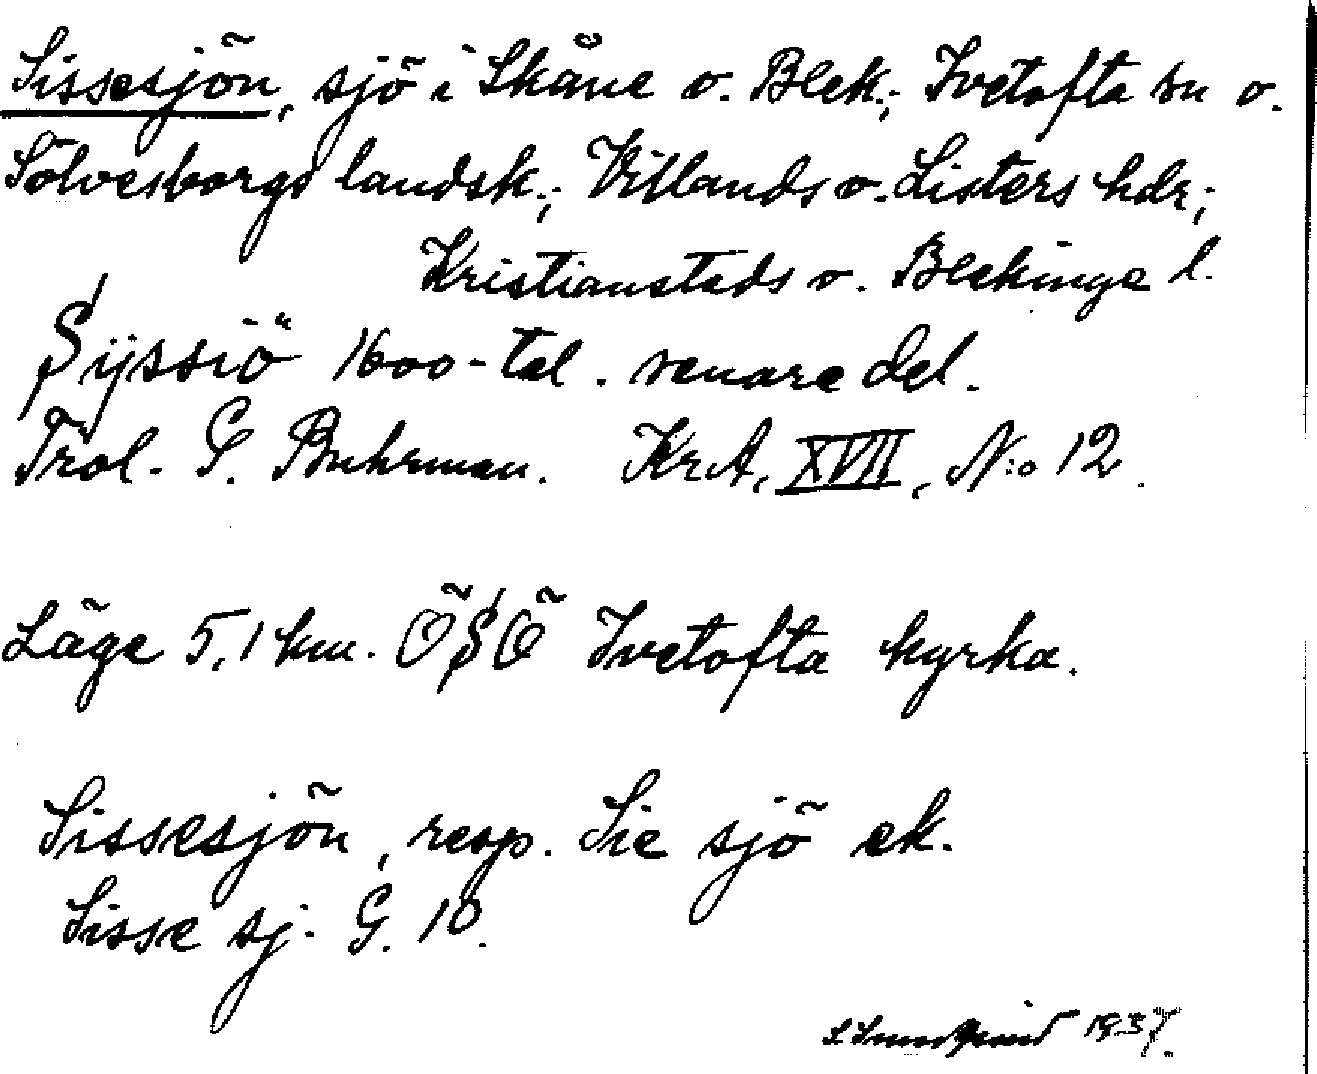 Sissesjön, sjö i Skåne o. Blek.; Ivetofta sn o.
Sölvesborgs landsk.; Villands o. Listers hdr;
Kristianstads o. Blekinge l.
Sijssiö 1600-tal. senare del.
Trol. G. Buhrman. KrA, XVII, N:o 12.
Läge 5,1 km. ÖSÖ Ivetofta kyrka.
Sissesjön, resp. Sie sjö ek.
Sisse sj. G. 10.
1937.